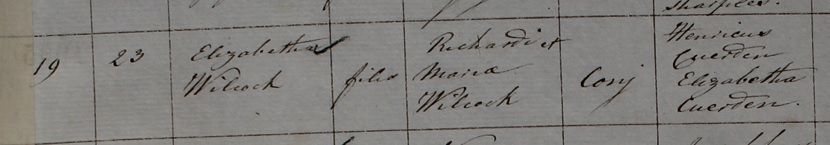 Sharples.
19 23 Elizabetha Wilcock filia Richardi et Mariæ Wilcock Conj Henricus Cuerden Elizabetha Cuerden.